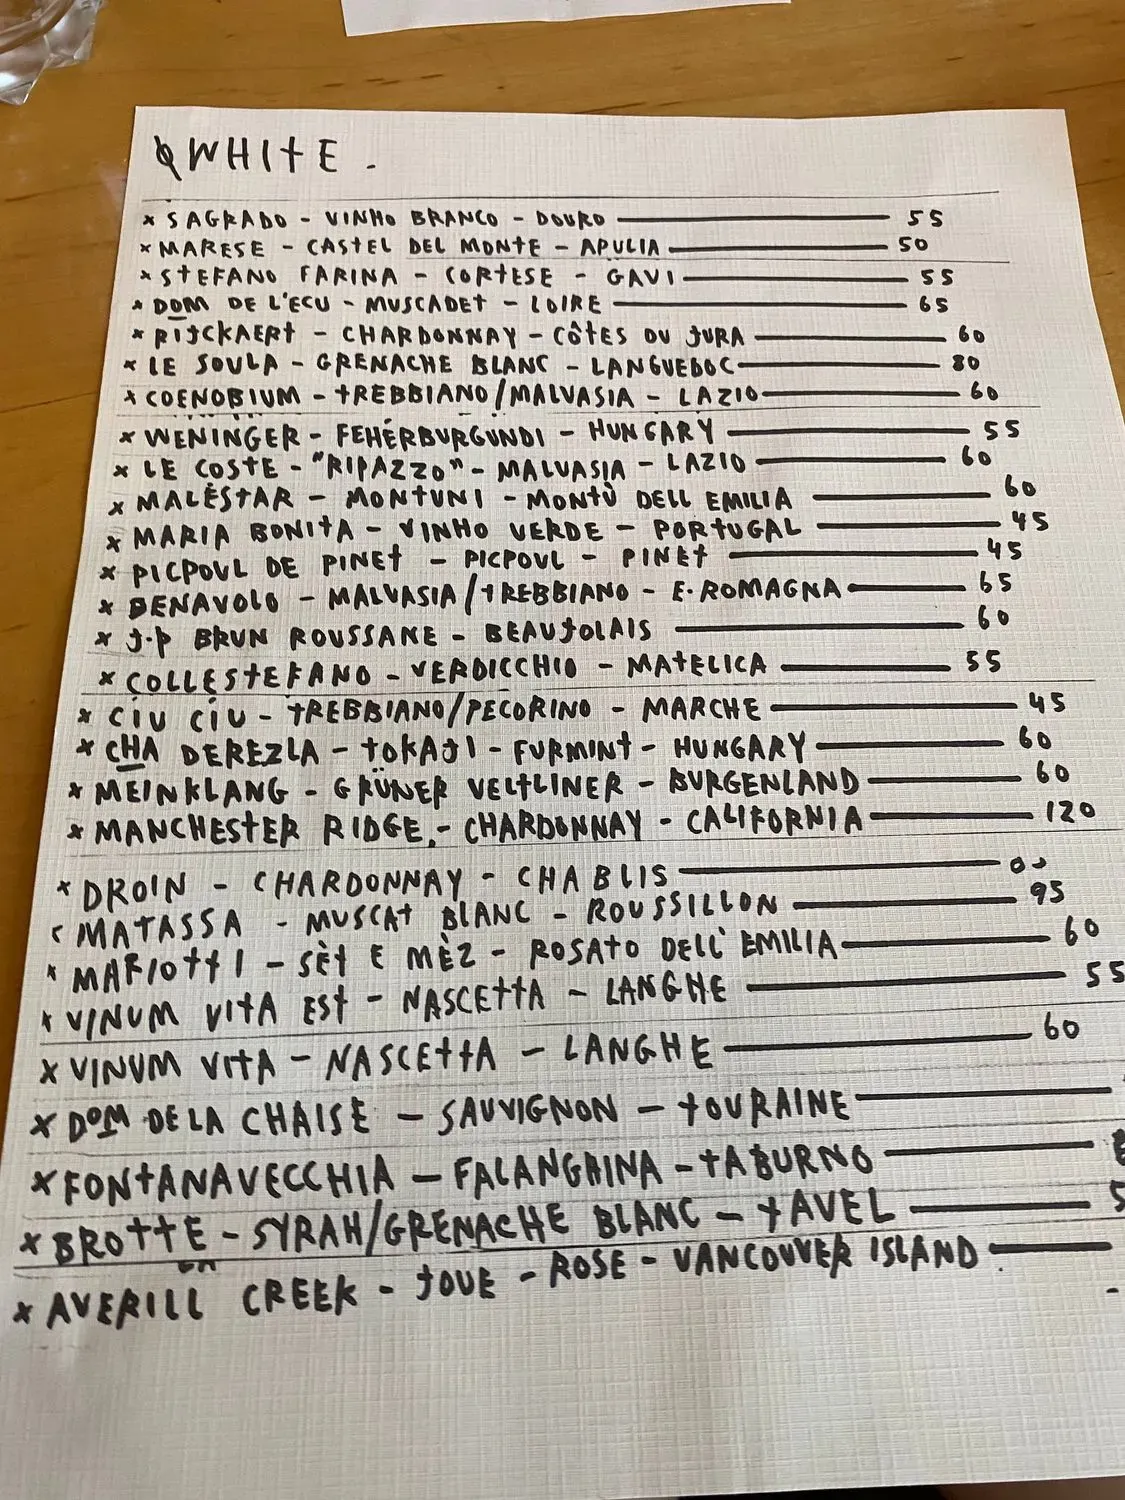 WHITE.
× SAGRADO - VINHO BRANCO - DOURO 55
× MARESE - CASTEL DEL MONTE - APULIA 50
× STEFANO FARINA - CORTESE - GAVI 55
× DOM DE L'ECU - MUSCADET - LOIRE 65
× RIJCKAERT - CHARDONNAY - CÔTES DU JURA 60
× LE SOULA - GRENACHE BLANC - LANGUEDOC 80
× COENOBIUM - TREBBIANO/MALVASIA - LAZIO 60
× WENINGER - FEHÉRBURGUNDI - HUNGARY 55
× LE COSTE - "RIPAZZO" - MALVASIA - LAZIO 60
× MALESTAR - MONTUNI - MONTÙ DELL EMILIA 60
× MARIA BONITA - VINHO VERDE - PORTUGAL 45
× PICPOUL DE PINET - PICPOUL - PINET 45
× DENAVOLO - MALVASIA/TREBBIANO - E. ROMAGNA 65
× J.P BRUN ROUSSANE - BEAUJOLAIS 60
× COLLESTEFANO - VERDICCHIO - MATELICA 55
× CIU CIU - TREBBIANO/PECORINO - MARCHE 45
× CHA DEREZLA - TOKAJI - FURMINT - HUNGARY 60
× MEINKLANG - GRÜNER VELTLINER - BURGENLAND 60
× MANCHESTER RIDGE - CHARDONNAY - CALIFORNIA 120
× DROIN - CHARDONNAY - CHABLIS
× MATASSA - MUSCAT BLANC - ROUSSILLON 95
× MARIOTTI - SÈT E MÈZ - ROSATO DELL' EMILIA 60
× VINUM VITA EST - NASCETTA - LANGHE 55
× VINUM VITA - NASCETTA - LANGHE 60
× DOM DE LA CHAISE - SAUVIGNON - TOURAINE
× FONTANAVECCHIA - FALANGHINA - TABURNO
× BROTTE - SYRAH/GRENACHE BLANC - TAVEL
× AVERILL CREEK - JOUE - ROSE - VANCOUVER ISLAND